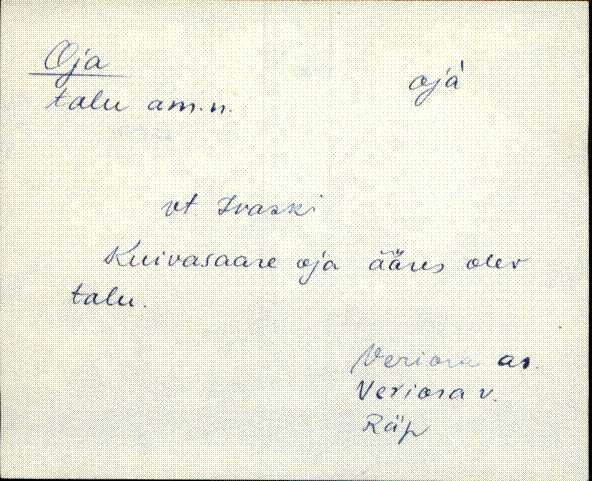 Oja
ojá
talu am.n.
vt Ivaski
Kuivasaare oja ääres olev
talu.
Veriora as.
Veriora v.
Räp